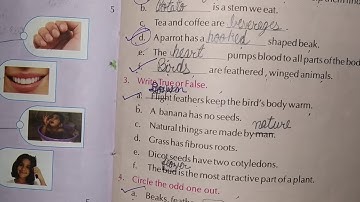 b. Potato is a stem we eat.
c. Tea and coffee are beverages.
d. A parrot has a hooked shaped beak.
e. The heart pumps blood to all parts of the bod
f. Birds are feathered, winged animals.
3. Write True or False.
a. Flight feathers keep the bird's body warm.
b. A banana has no seeds.
nature
c. Natural things are made by man.
d. Grass has fibrous roots.
e. Dicot seeds have two cotyledons.
flower
f. The bud is the most attractive part of a plant.
4. Circle the odd one out.
a. Beaks, feathe